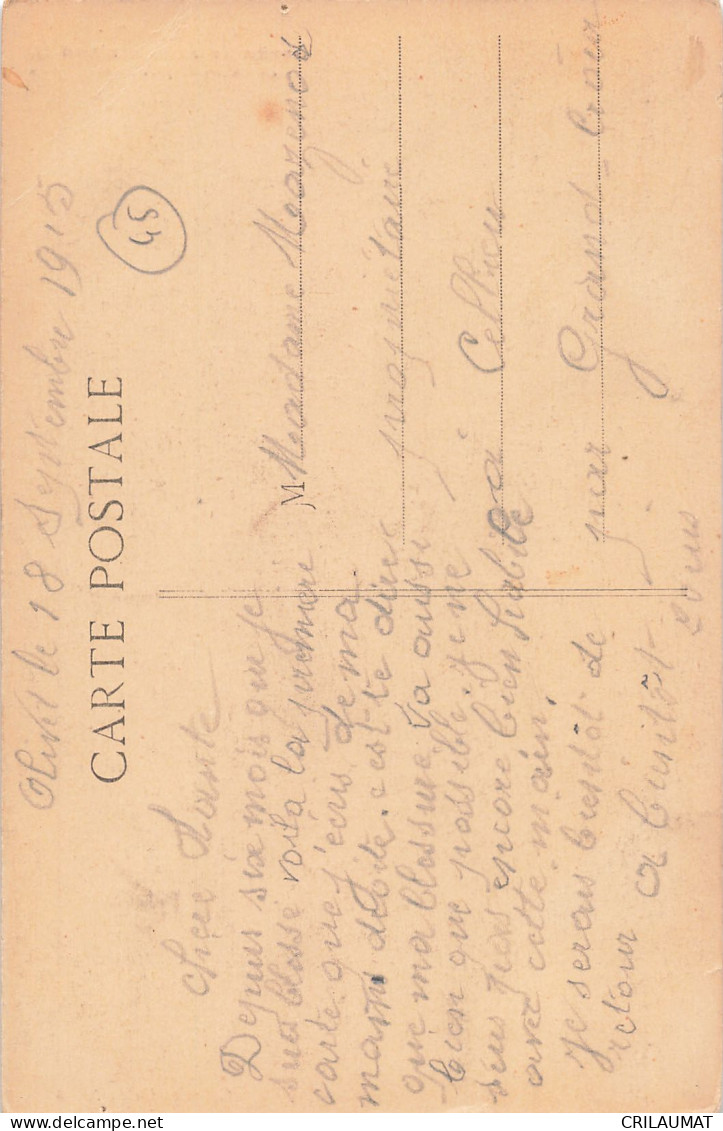 le 18 Septembre 1915
CARTE POSTALE
45
Chère Tante
Depuis six mois que je
suis blessé voila la première
carte que j'écris de ma
main droite. c'est te dire
que ma blessure va aussi
bien que possible. je ne
suis pas encore bien habile
avec cette main.
Je serais bientôt de
retour a bientôt
M Madame Mazenod
propriétaire
a Cellieu
par Grand Croix
CRILAUMAT